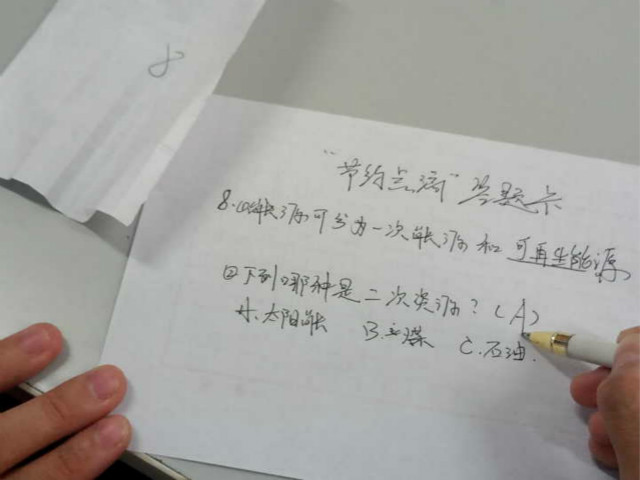 8
"节约点滴"答题卡
8.(1)能源可分为一次能源和可再生能源
(2)下列哪种是二次类源?(A)
A.太阳能 B. 煤 C.石油.